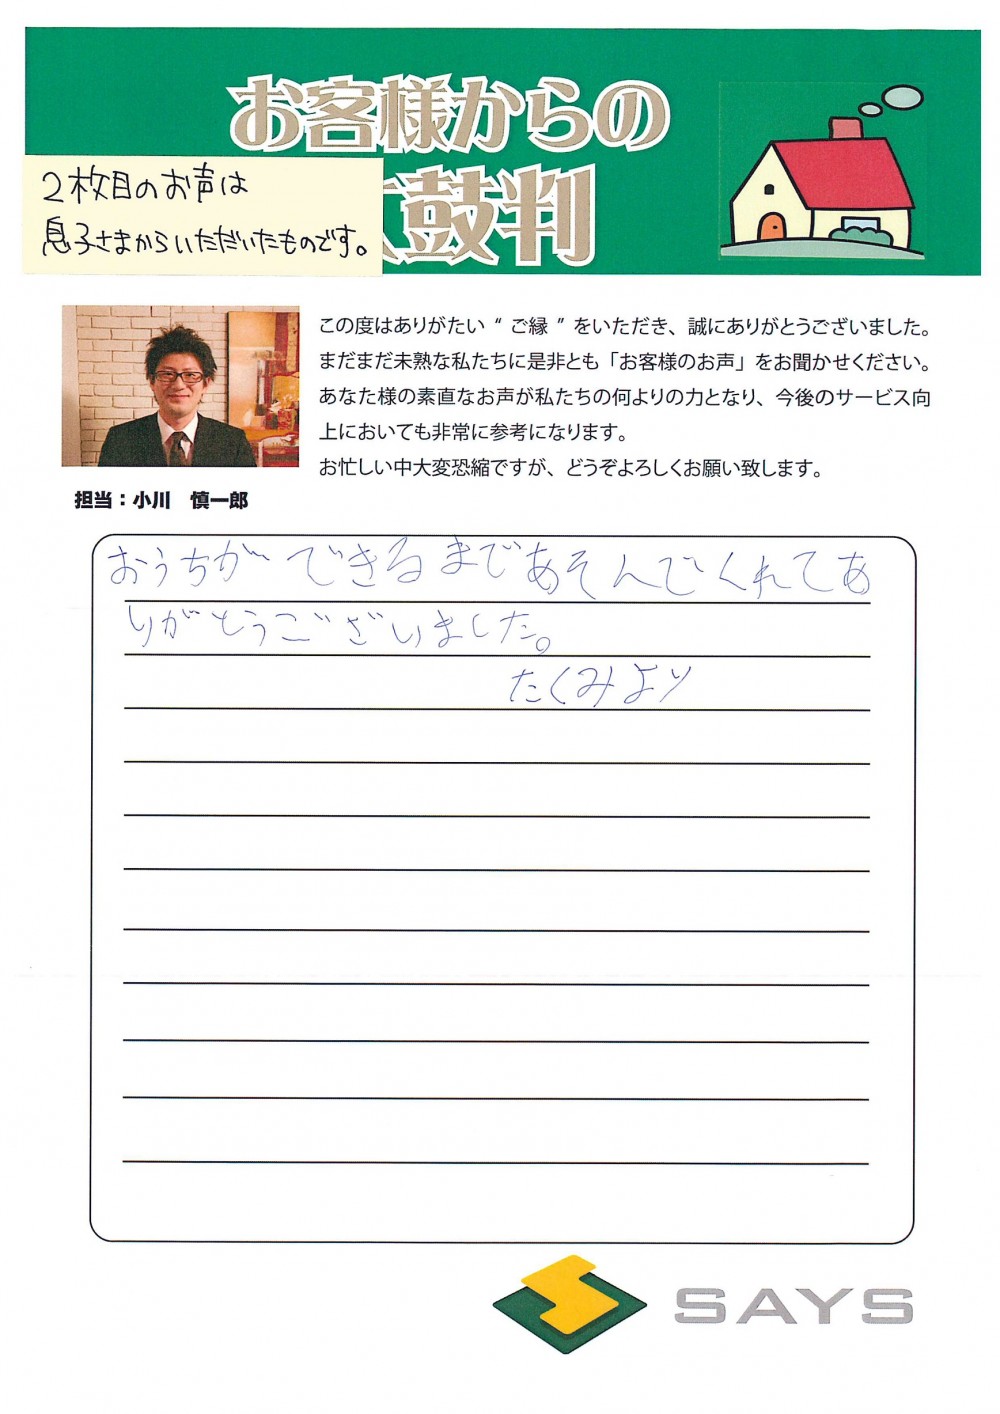 お客様からの
鼓判
2枚目のお声は
息子さまからいただいたものです。
この度はありがたい“ ご縁 ”をいただき、誠にありがとうございました。
まだまだ未熟な私たちに是非とも「お客様のお声」をお聞かせください。
あなた様の素直なお声が私たちの何よりの力となり、今後のサービス向
上においても非常に参考になります。
お忙しい中大変恐縮ですが、どうぞよろしくお願い致します。
担当：小川　慎一郎
おうちができるまであそんでくれてあ
りがとうございました。
たくみより
SAYS